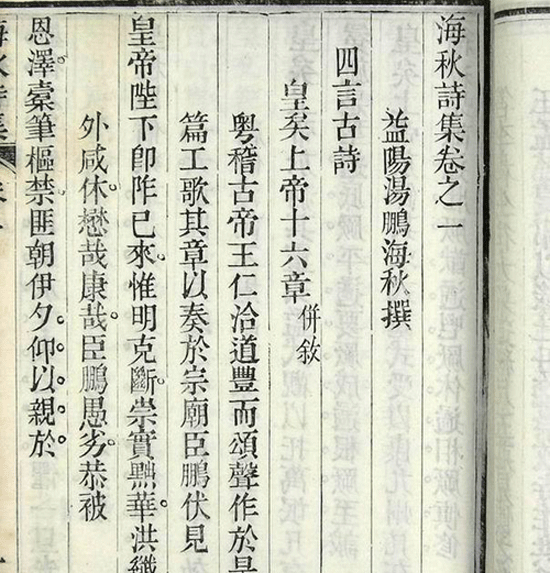 海秋詩集卷之一
益陽湯鵬海秋撰
四言古詩
皇矣上帝十六章併敘
粤稽古帝王仁洽道豐而頌聲作於是
篇工歌其章以奏於宗廟臣鵬伏見
皇帝陛下卽阼已來惟明克斷崇實黜華洪纖
外咸休懋哉康哉臣鵬愚劣恭被
恩澤槖筆樞禁匪朝伊夕仰以親於
海秋詩集